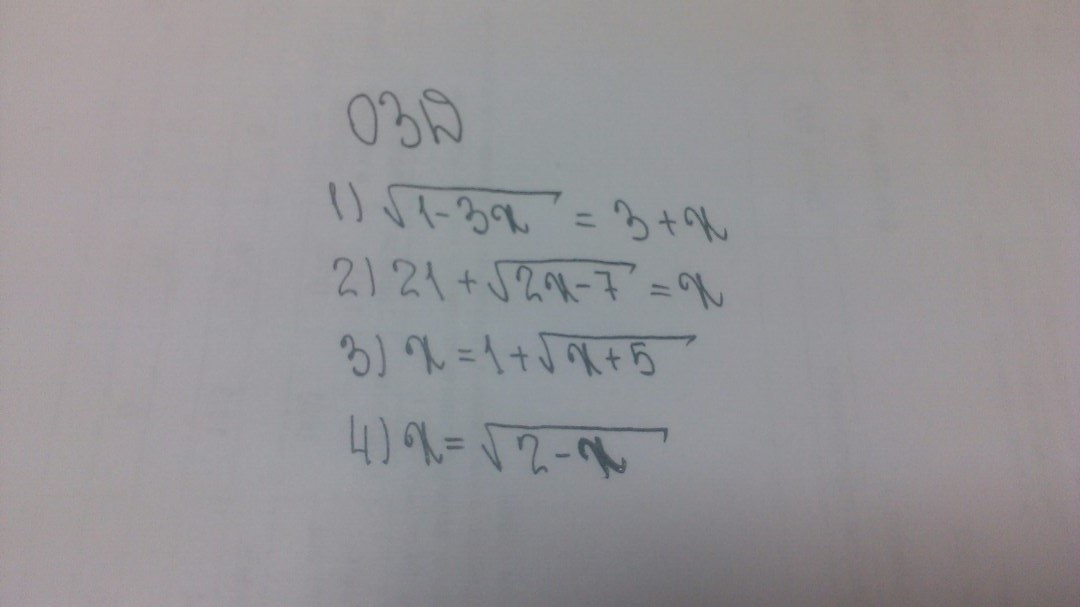 ОЗД
1) √1-3x = 3+x
2) 21+√2x-7 = x
3) x=1+√x+5
4) x= √2-x